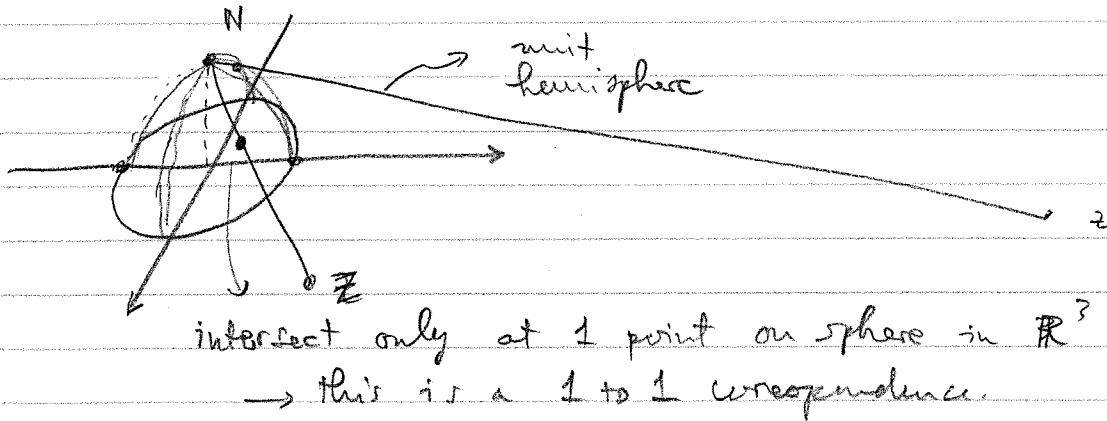 N
unit
hemisphere
z
Z
intersect only at 1 point on sphere in ℝ³
→ this is a 1 to 1 correspondence.